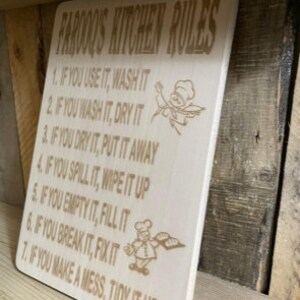 FAROOQ'S KITCHEN RULES
1. IF YOU USE IT, WASH IT
2. IF YOU WASH IT, DRY IT
3. IF YOU DRY IT, PUT IT AWAY
4. IF YOU SPILL IT, WIPE IT UP
5. IF YOU EMPTY IT, FILL IT
6. IF YOU BREAK IT, FIX IT
7. IF YOU MAKE A MESS, TIDY IT UP